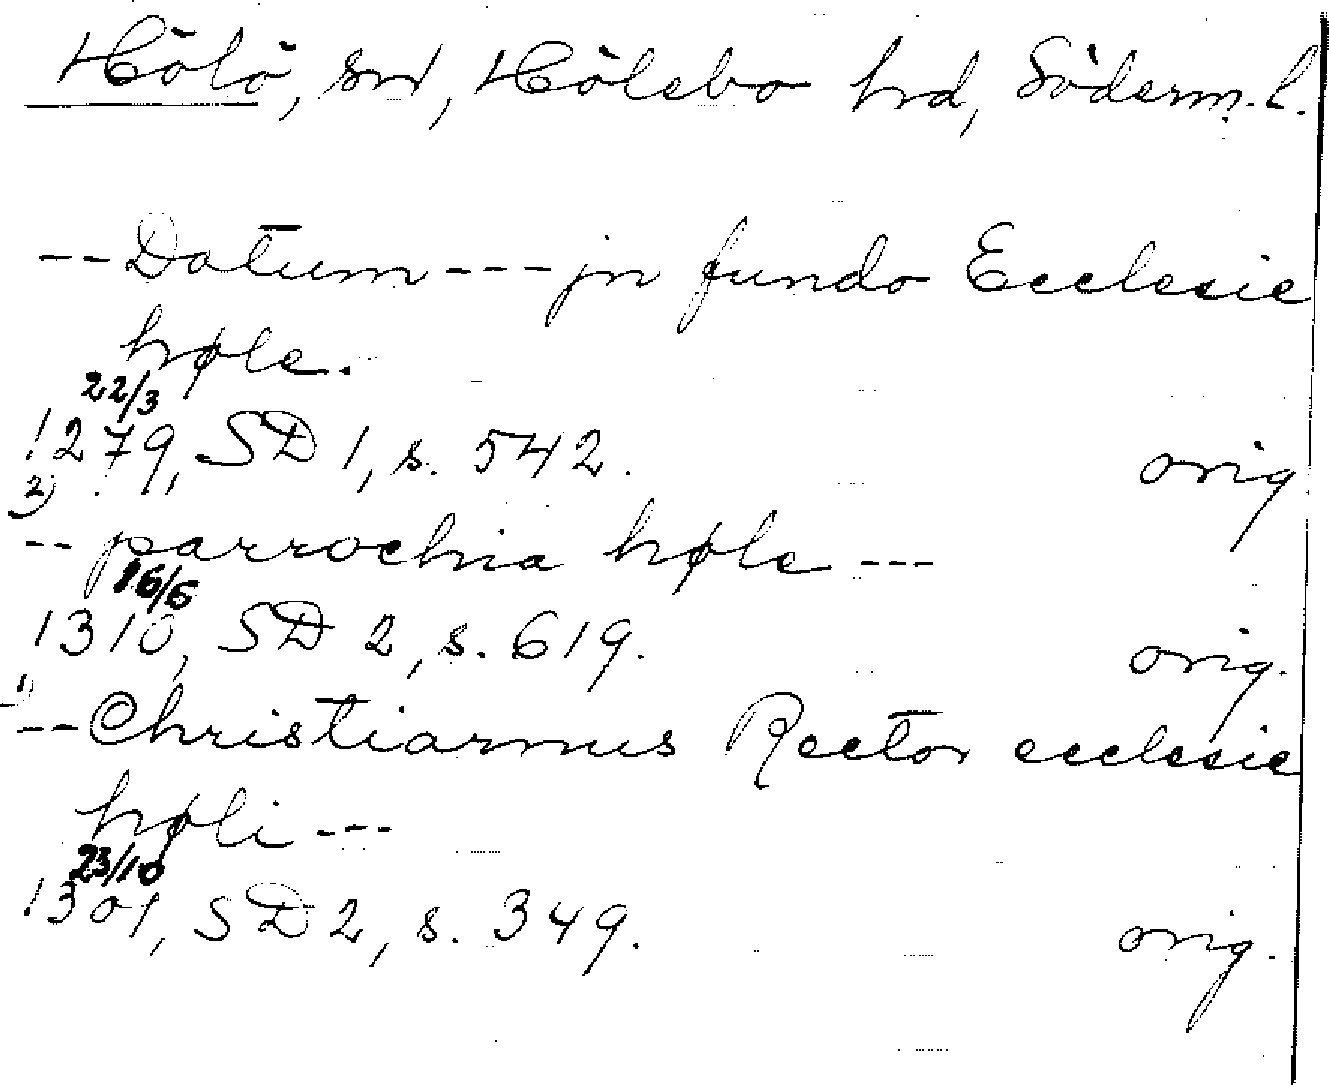 Hölö, sn, Hölebo hd, Söderm. l.
-- Datum --- jn fundo Ecclesie
høle.
22/3
1279, SD 1, s. 542. orig
2)
-- parrochia høle ---
16/6
1310, SD 2, s. 619. orig.
1)
-- Christiarnus Rector ecclesie
høli ---
23/10
1301, SD 2, s. 349. orig.